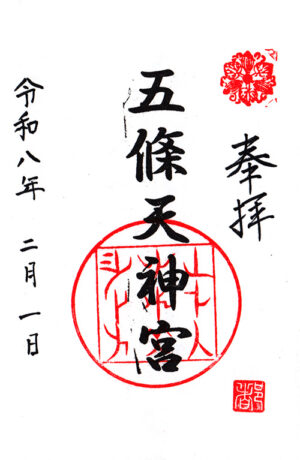 奉拝
五條天神宮
令和八年 二月一日